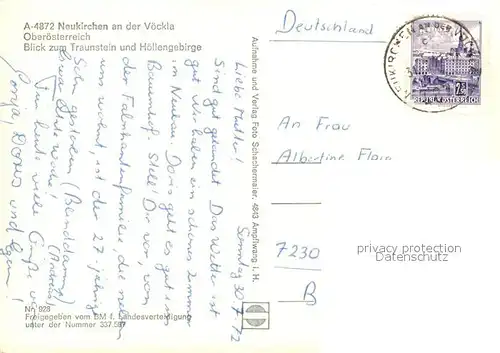 A-4872 Neukirchen an der Vöckla
Oberösterreich
Blick zum Traunstein und Höllengebirge
Deutschland
NEUKIRCHEN AN DER VÖCKLA
REPUBLIK ÖSTERREICH
An Frau
Albertine
7230
B
privacy protection
Datenschutz
Aufnahme und Verlag Foto Schachermaier, 4843 Ampflwang i. H.
Sonntag 30.7.72
Liebe Mutter!
Sind gut gelandet. Das Wetter ist
gut. Wir haben ein schönes Zimmer
im Neubau. Doris geht es gut im
Bauernhof. Stell Dir vor, von
der Familie, die neben
uns wohnt, ist der 27-jährige
Sohn gestorben (Blinddarm)
letzte Woche!
Für heute viele Grüße von
Sonja, Doris und
Nr. 928
Freigegeben vom BM f. Landesverteidigung
unter der Nummer 337.587